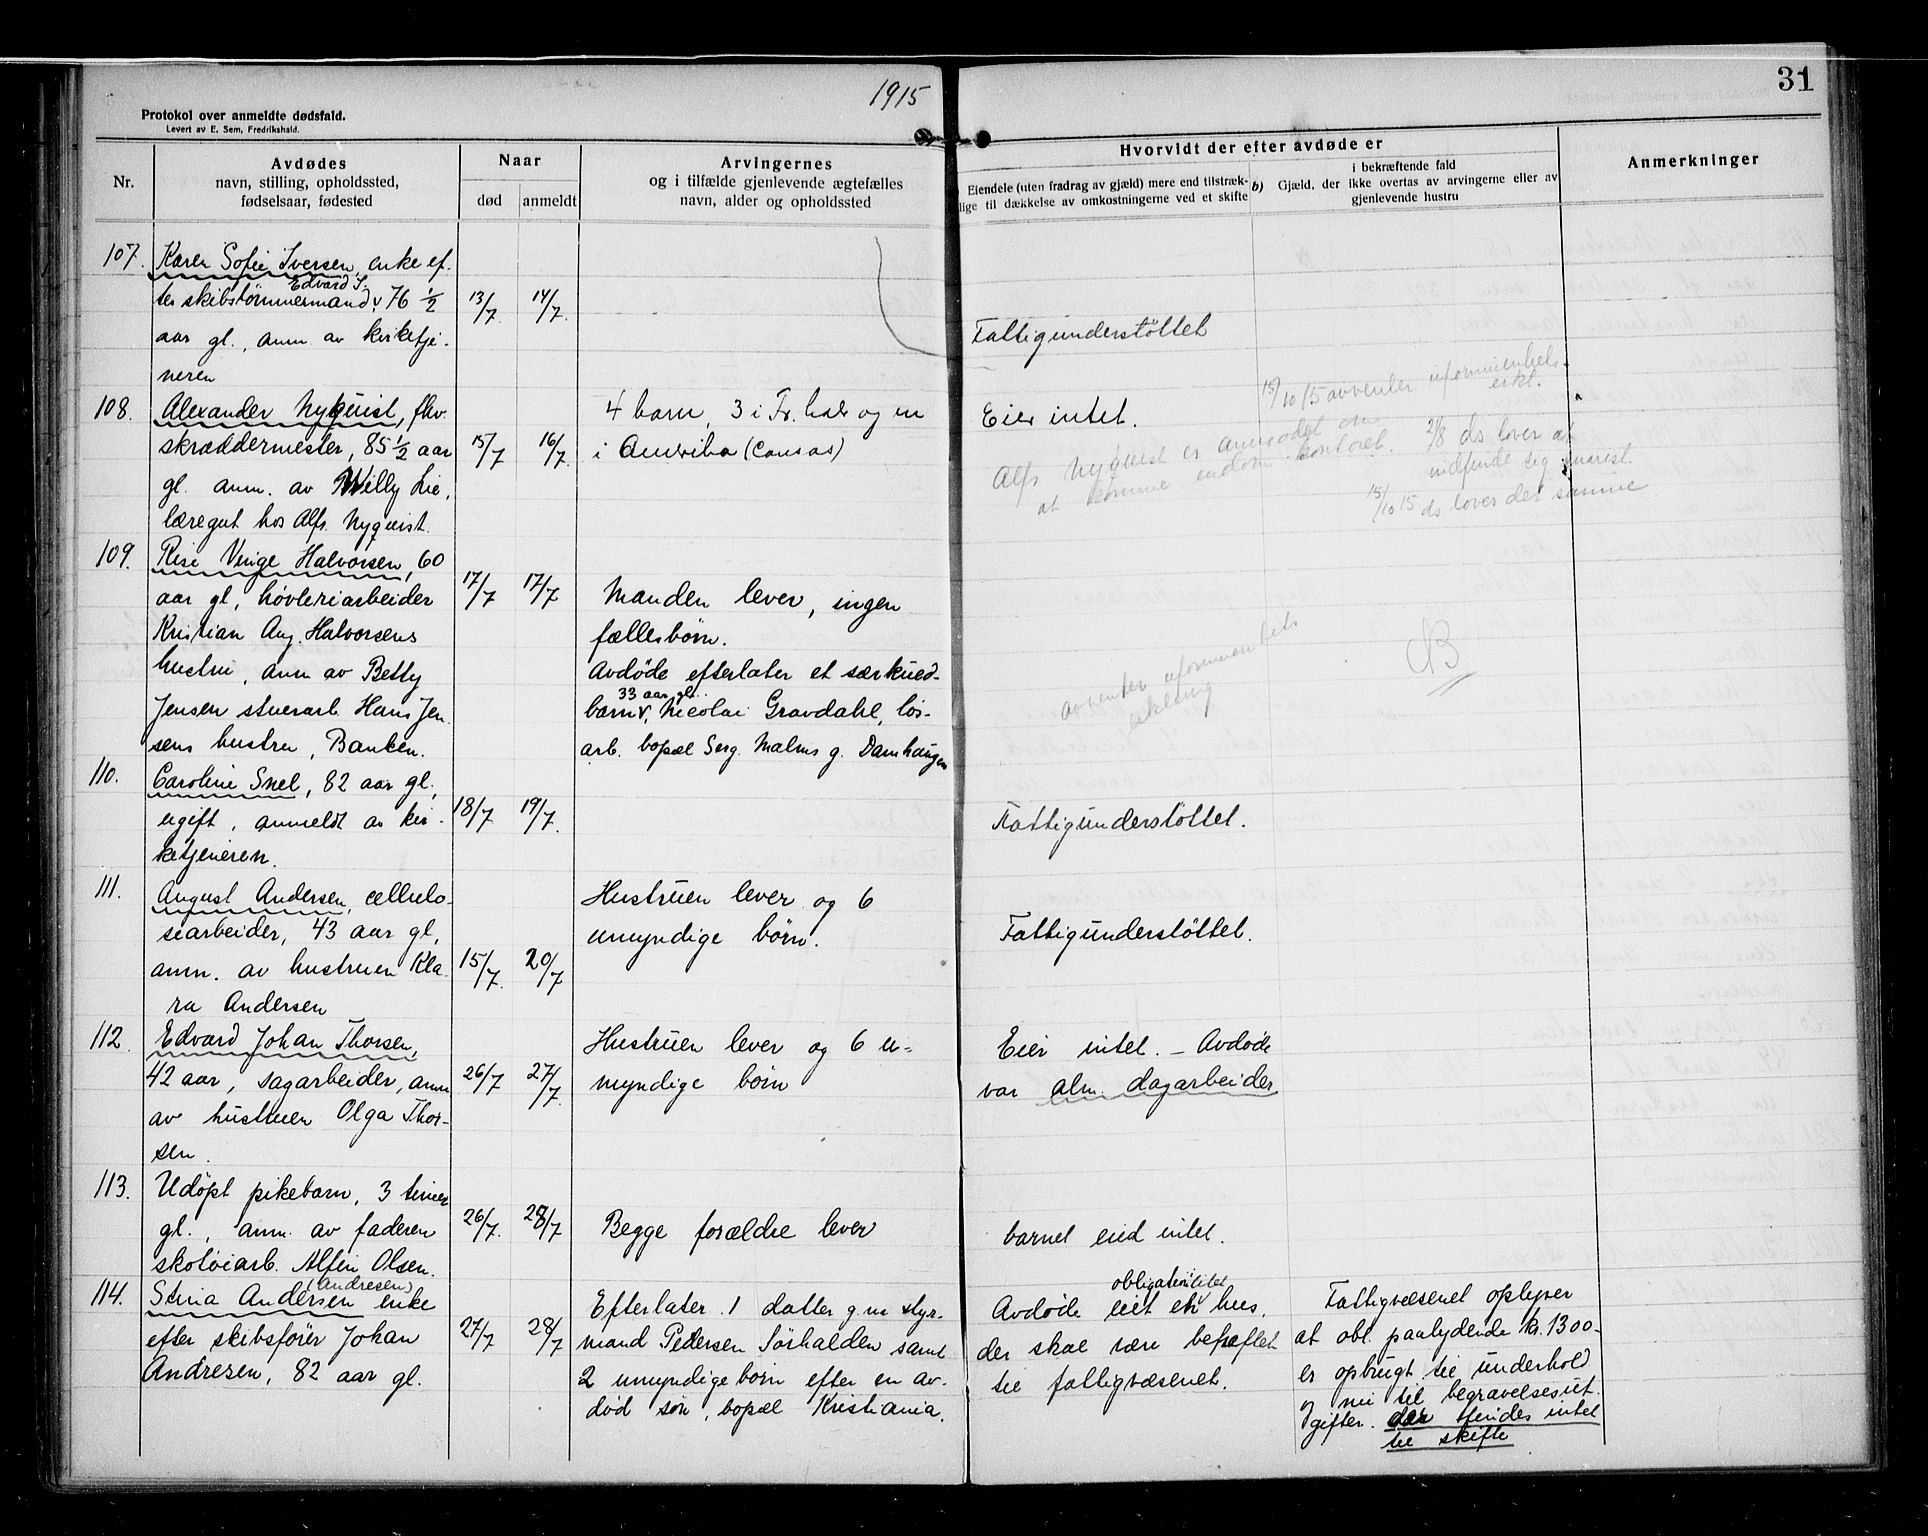 1915
31
Protokol over anmeldte dødsfald.
Levert av E. Sem, Fredrikshald.
Nr.
Avdødes
navn, stilling, opholdssted,
fødselsaar, fødested
Naar
død
anmeldt
Arvingernes
og i tilfælde gjenlevende ægtefælles
navn, alder og opholdssted
Hvorvidt der efter avdøde er
Eiendele (uten fradrag av gjæld) mere end tilstræk-
lige til dækkelse av omkostningerne ved et skifte
b)
i bekræftende fald
Gjæld, der ikke overtas av arvingerne eller av
gjenlevende hustru
Anmerkninger
107. Karen Sofie Iversen, enke ef-
Edvard I.
ter skibstømmermand v 76 1/2
aar gl., anm. av kirketje-
neren
13/7
14/7.
Fattigunderstöttet
108. Alexander Nyquist, fhv.
skræddermester, 85 1/2 aar
gl. anm. av Willy Lie,
læregut hos Alfs. Nyquist.
15/7
16/7.
4 barn, 3 i Fr.hald og en
i Amerika (Cansas)
Eier intet.
Alfs Nyquist er anmodet om
at komme endom kontoret.
15/10 15 avventer uformuenhets
erkl.
21/8 ds lover at
indfinde sig snarest.
15/10 15 ds lover det samme
109. Rise Vinge Halvorsen, 60
aar gl, høvleriarbeider
Kristian Aug. Halvorsens
hustru, anm av Betty
Jensen stuerarb. Hans Jen
sens hustru, Banken.
17/7
17/7
Manden lever, ingen
fællesbørn.
Avdøde efterlater et særkued-
33 aar gl.
barn v, Nicolai Gravdahl, løs-
arb. bopæl Serg. Malms g. Damhaugen
avventer uformuenhets
erklæring
NB
110. Caroline Snel, 82 aar gl.,
ugift, anmeldt av kir-
ketjeneren.
18/7
19/7.
Fattigunderstöttet.
111. August Andersen, cellulo-
searbeider, 43 aar gl,
anm. av hustruen Kla-
ra Andersen
15/7.
20/7
Hustruen lever og 6
umyndige børn.
Fattigunderstöttet.
112. Edvard Johan Thorsen,
42 aar, sagarbeider, anm
av hustruen Olga Thor-
sen.
26/7
27/7.
Hustruen lever og 6 u-
myndige børn
Eier intet. – Avdøde
var alm. dagarbeider
113. Udøpt pikebarn, 3 timer
gl., anm. av faderen
skotøiarb. Alfin Olsen.
26/7.
28/7
Begge forældre lever
barnet eied intet.
114. Stina Andersen (Andresen) enke
efter skibsfører Johan
Andresen, 82 aar gl.
27/7
28/7
Efterlater 1 datter g.m. styr-
mand Pedersen Sørhalden samt
2 umyndige børn efter en av-
død søn, bopæl Kristiania.
Avdøde eiet et v hus,
der skal være beheftet
til fattigvæsenet.
Fattigvæsenet oplyser
at obl. paalydende kr. 1300-
er opbrugt til underhold
og nu til begravelsesut-
gifter. der findes intet
til skifte